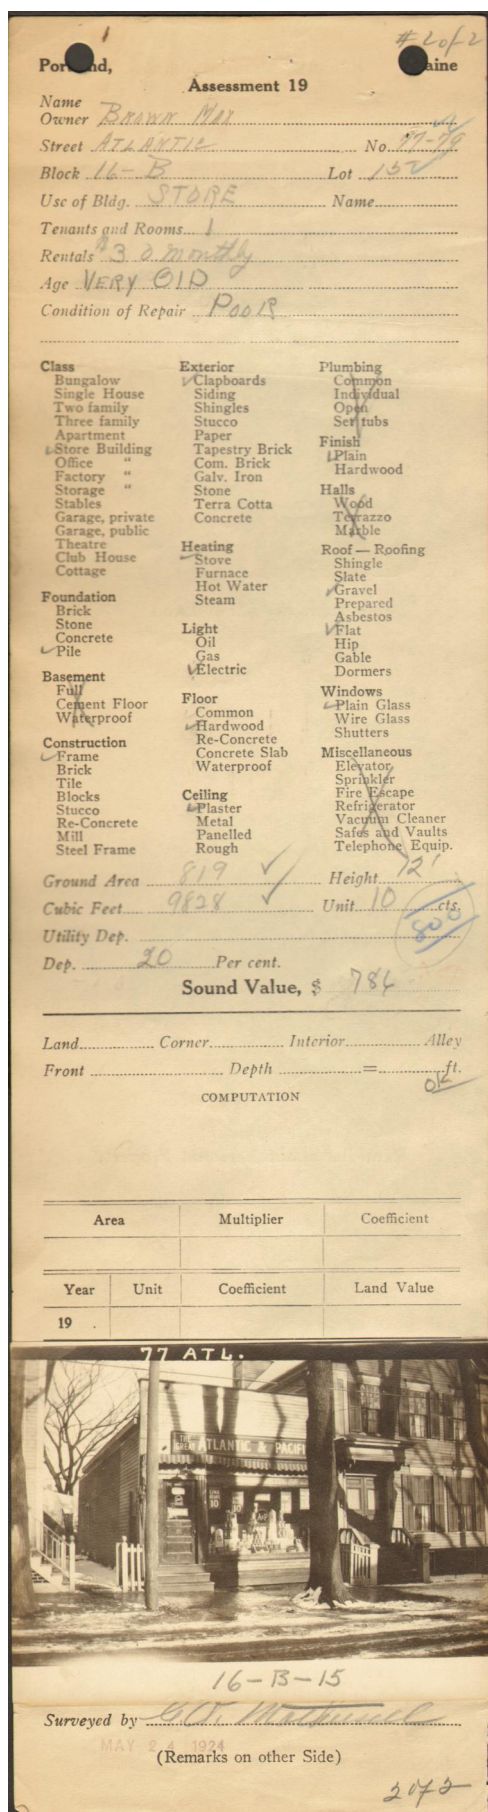 # 2 of 2
Portland, Maine
Assessment 19
Name
Owner Brown Max
Street ATLANTIC No. 77-79
Block 16-B Lot 15
Use of Bldg. STORE Name
Tenants and Rooms 1
Rentals $30 monthly
Age VERY OLD
Condition of Repair POOR
Class
Bungalow
Single House
Two family
Three family
Apartment
Store Building
Office "
Factory "
Storage "
Stables
Garage, private
Garage, public
Theatre
Club House
Cottage
Foundation
Brick
Stone
Concrete
Pile
Basement
Full
Cement Floor
Waterproof
Construction
Frame
Brick
Tile
Blocks
Stucco
Re-Concrete
Mill
Steel Frame
Exterior
Clapboards
Siding
Shingles
Stucco
Paper
Tapestry Brick
Com. Brick
Galv. Iron
Stone
Terra Cotta
Concrete
Heating
Stove
Furnace
Hot Water
Steam
Light
Oil
Gas
Electric
Floor
Common
Hardwood
Re-Concrete
Concrete Slab
Waterproof
Ceiling
Plaster
Metal
Panelled
Rough
Plumbing
Common
Individual
Open
Set tubs
Finish
Plain
Hardwood
Halls
Wood
Terrazzo
Marble
Roof — Roofing
Shingle
Slate
Gravel
Prepared
Asbestos
Flat
Hip
Gable
Dormers
Windows
Plain Glass
Wire Glass
Shutters
Miscellaneous
Elevator
Sprinkler
Fire Escape
Refrigerator
Vacuum Cleaner
Safes and Vaults
Telephone Equip.
Ground Area 819 Height 12'
Cubic Feet 9828 Unit 10 cts.
Utility Dep.
Dep. 20 Per cent.
Sound Value, $ 786
Land Corner Interior Alley
Front Depth = ft.
OK
COMPUTATION
Area Multiplier Coefficient
Year Unit Coefficient Land Value
19 .
77 ATL.
THE GREAT ATLANTIC & PACIFI
16-B-15
Surveyed by
MAY 24 1924
(Remarks on other Side)
2072